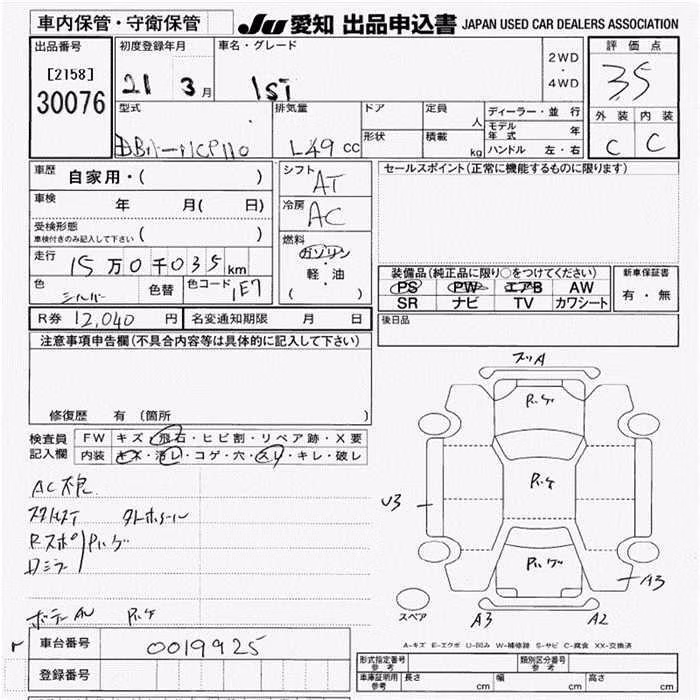 車内保管・守衛保管
JU 愛知 出品申込書 JAPAN USED CAR DEALERS ASSOCIATION
出品番号
[2158]
30076
初度登録年月
21 3月
車名・グレード
IST
2WD
・
4WD
評価点
3.5
外装 内装
C C
型式
NCP110
排気量
1.49 cc
ドア
形状
定員 人
積載 kg
ディーラー・並行
モデル年式 年
ハンドル 左・右
車歴 自家用・( )
車検 年 月( 日)
受検形態
車検付きのみ記入して下さい ( )
走行 15万0千035km
色 シルバー 色替 色コード 1E7
シフト AT
冷房 AC
燃料
ガソリン
・
軽・油
( )
セールスポイント(正常に機能するものに限ります)
装備品(純正品に限り○をつけてください)
PS PW エアB AW
SR ナビ TV カワシート
新車保証書
有・無
R券 12,040 円 名変通知期限 月 日
後日品
注意事項申告欄(不具合内容等は具体的に記入して下さい)
修復歴 有 (箇所 )
検査員記入欄
FW キズ・飛石・ヒビ割・リペア跡・X要
内装 キズ・汚レ・コゲ・穴・スレ・キレ・破レ
U3
A3
A3
A2
スペア
A-キズ E-エクボ U-凹み W-補修跡 S-サビ C-腐食 XX-交換済
車台番号 0019925
登録番号
型式指定番号 参考
類別区分番号 参考
車庫証明用 参考 長さ cm 幅 cm 高さ cm